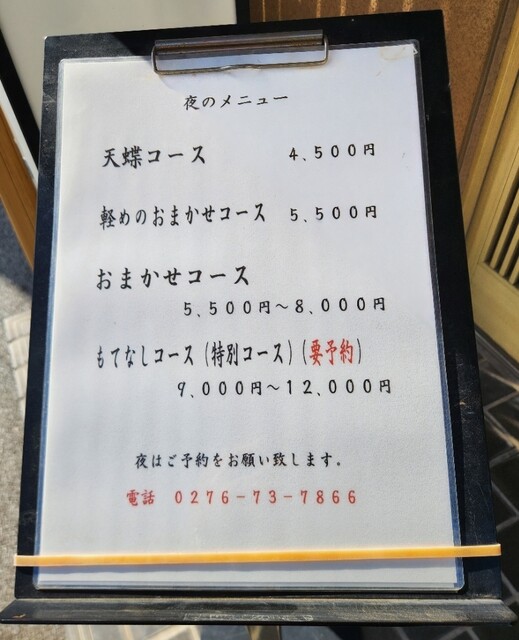 夜のメニュー
天蝶コース 4、500円
軽めのおまかせコース 5、500円
おまかせコース
5、500円～8、000円
もてなしコース(特別コース)(要予約)
9、000円～12、000円
夜はご予約をお願い致します。
電話 0276-73-7866